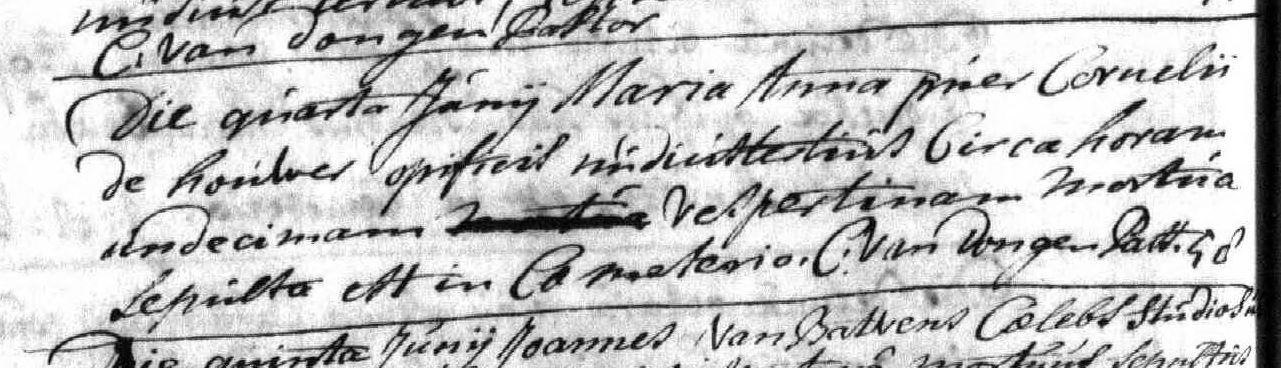 C. Van Dongen Pastor
Die quarta Junij Maria Anna puer Cornelii
de houwer opificis Circa horam
undecimam Vespertinam mortua
Sepulta est in Cœmeterio. C. Van Dongen Past.
Die quinta Junij Joannes Van Cælebs Studiosus
mortuus Sepultus